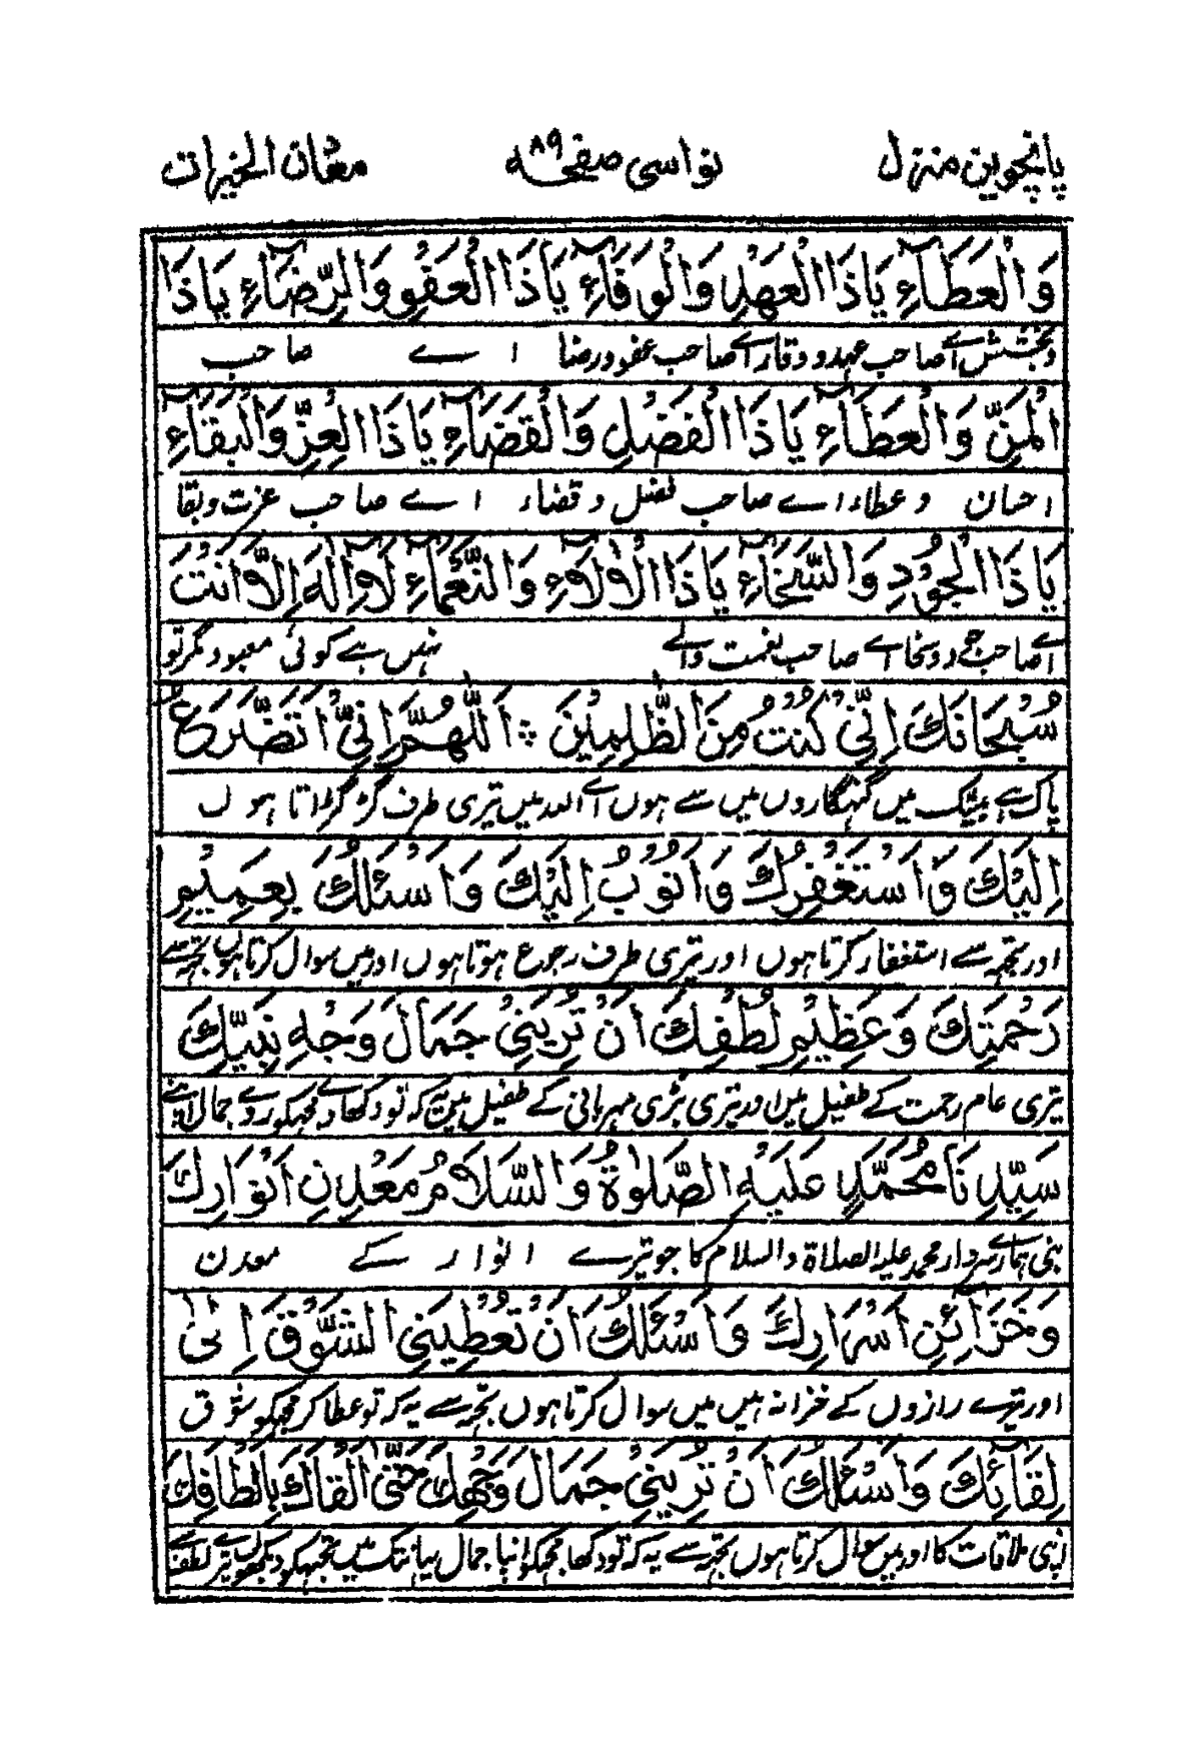 پانچویں منزل نواسی صفحہ ۸۹ معان الخیرات
وَالْعَطَآءِ يَاذَا الْعَهْدِ وَالْوَقَآءِ يَاذَا الْعَفْوِ وَالرِّضَآءِ يَاذَا
وبخشش اے صاحب عہد و وقار اے صاحب عفو و رضا اے صاحب
الْمَنِّ وَالْعَطَآءِ يَاذَا الْفَضْلِ وَالْقَضَآءِ يَاذَا الْعِزِّ وَالْبَقَآءِ
احسان و عطاء اے صاحب فضل و قضاء اے صاحب عزت و بقا
يَاذَا الْجُوْدِ وَالسَّخَآءِ يَاذَا الْاٰلَآءِ وَالنَّعْمَآءِ لَآ اِلٰهَ اِلَّآ اَنْتَ
اے صاحب جود و سخا اے صاحب نعمت والے نہیں ہے کوئی معبود مگر تو
سُبْحَانَكَ اِنِّيْ كُنْتُ مِنَ الظّٰلِمِيْنَ ؞ اَللّٰهُمَّ اِنِّيْٓ اَتَضَرَّعُ
پاک ہے بیشک میں گنہگاروں میں سے ہوں اے اللہ میں تیری طرف گڑگڑاتا ہوں
اِلَيْكَ وَاَسْتَغْفِرُكَ وَاَتُوْبُ اِلَيْكَ وَاَسْئَلُكَ بِعَمِيْمِ
اور تجھ سے استغفار کرتا ہوں اور تیری طرف رجوع ہوتا ہوں اور میں سوال کرتا ہوں تجھ سے
رَحْمَتِكَ وَعَظِيْمِ لُطْفِكَ اَنْ تُرِيَنِيْ جَمَالَ وَجْهِ نَبِيِّكَ
تیری عام رحمت کے طفیل میں اور تیری بڑی مہربانی کے طفیل میں یہ کہ تو دکھادے مجھکو روے جمال اپنے
سَيِّدِنَا مُحَمَّدٍ عَلَيْهِ الصَّلٰوةُ وَالسَّلَامُ مَعْدِنِ اَنْوَارِكَ
نبی ہمارے سردار محمد علیہ الصلاة والسلام کا جو تیرے انوار کے معدن
وَخَزَآئِنِ اَسْرَارِكَ وَاَسْئَلُكَ اَنْ تُعْطِيَنِي الشَّوْقَ اِلٰى
اور تیرے رازوں کے خزانہ ہیں میں سوال کرتا ہوں تجھ سے یہ کہ تو عطا کر مجھکو شوق
لِقَآئِكَ وَاَسْئَلُكَ اَنْ تُرِيَنِيْ جَمَالَ وَجْهِكَ حَتّٰى اَلْقَاكَ بِاَلْطَافِكَ
اپنی ملاقات کا اور میں سوال کرتا ہوں تجھ سے یہ کہ تو دکھا مجھکو اپنا جمال یہانتک میں تجھکو دیکھوں تیرے لطف